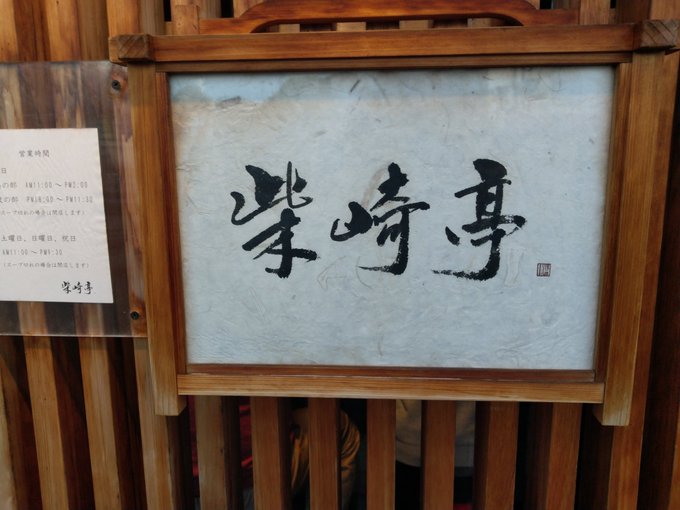 営業時間
日
の部 AM11:00～PM2:00
の部 PM18:00～PM11:30
スープ切れの場合は閉店します)
土曜日、日曜日、祝日
AM11:00～PM9:30
(スープ切れの場合は閉店します)
柴崎亭
柴崎亭